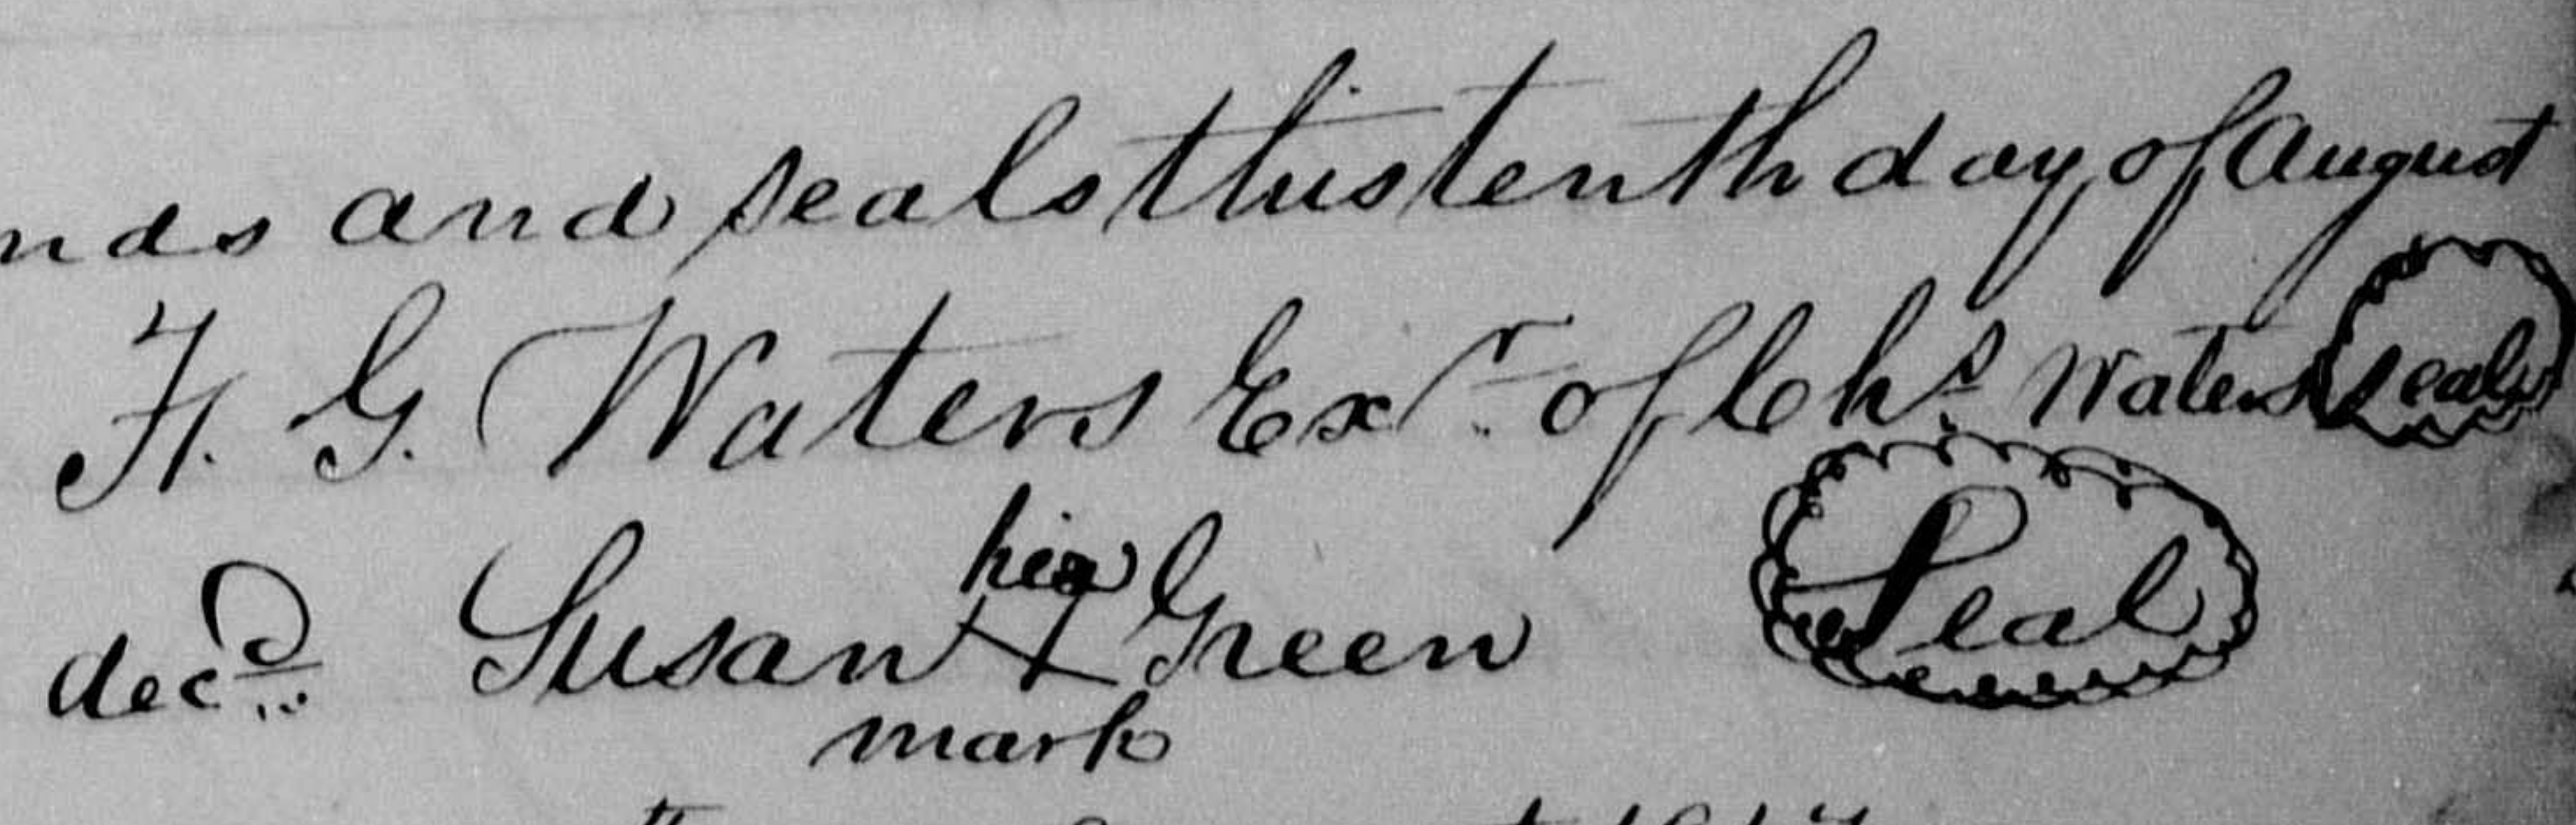 nds and seals this tenth day of August
F. G. Waters Exr. of Chs. Waters Seal
his
decd. Susan X Green Seal
mark